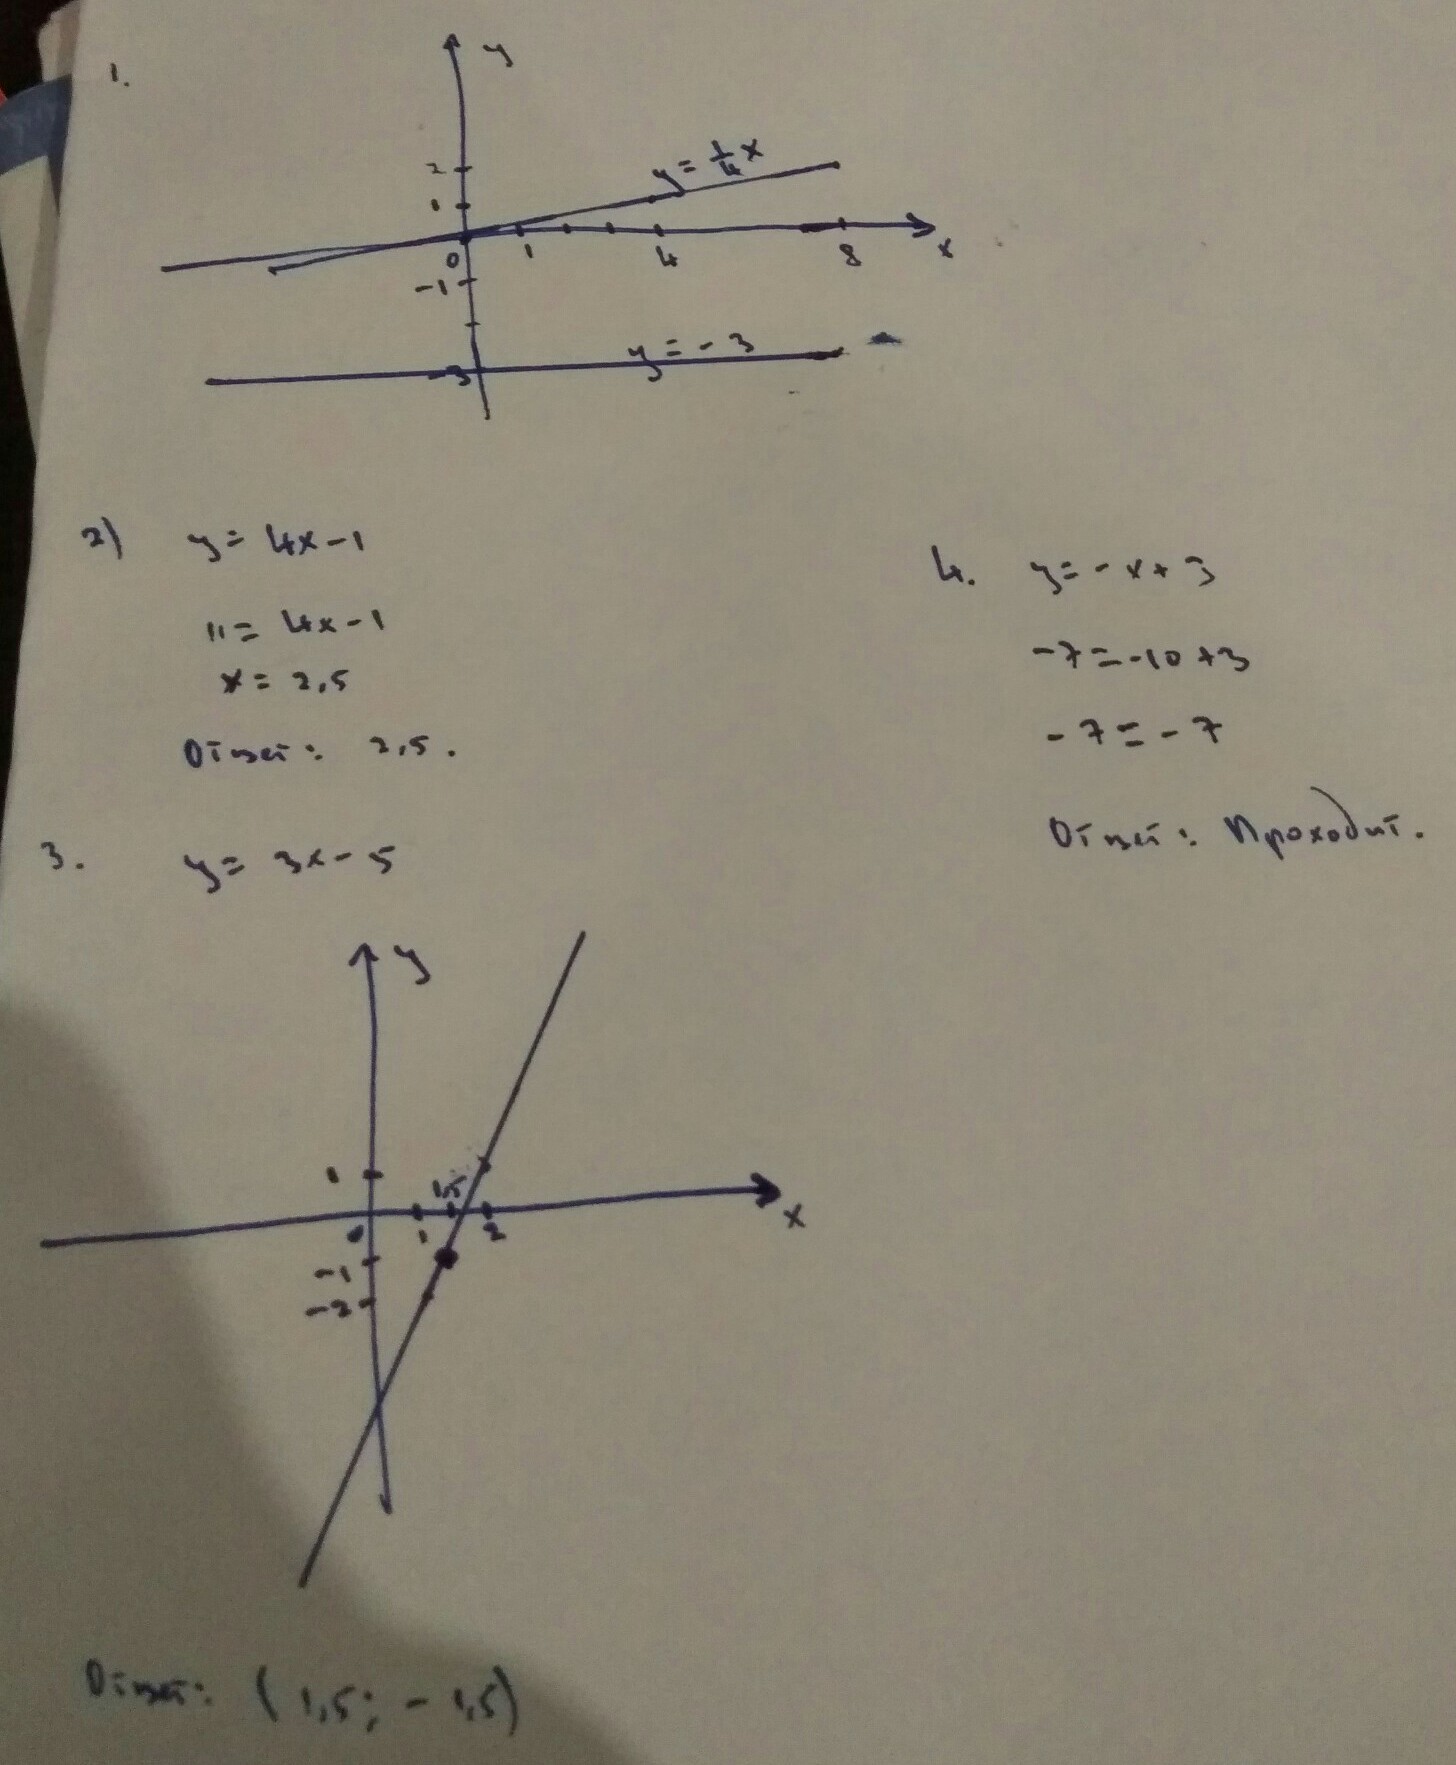 1.
y
y = 1/4 x
2
1
0
1
4
8
x
-1
y = - 3
-3
2)
y = 4x - 1
11 = 4x - 1
x = 2,5
Ответ: 2,5.
4.
y = - x + 3
-7 = -10 + 3
- 7 = - 7
Ответ: Проходит.
3.
y = 3x - 5
y
1
1,5
0
1
2
x
-1
-2
Ответ: (1,5; - 1,5)